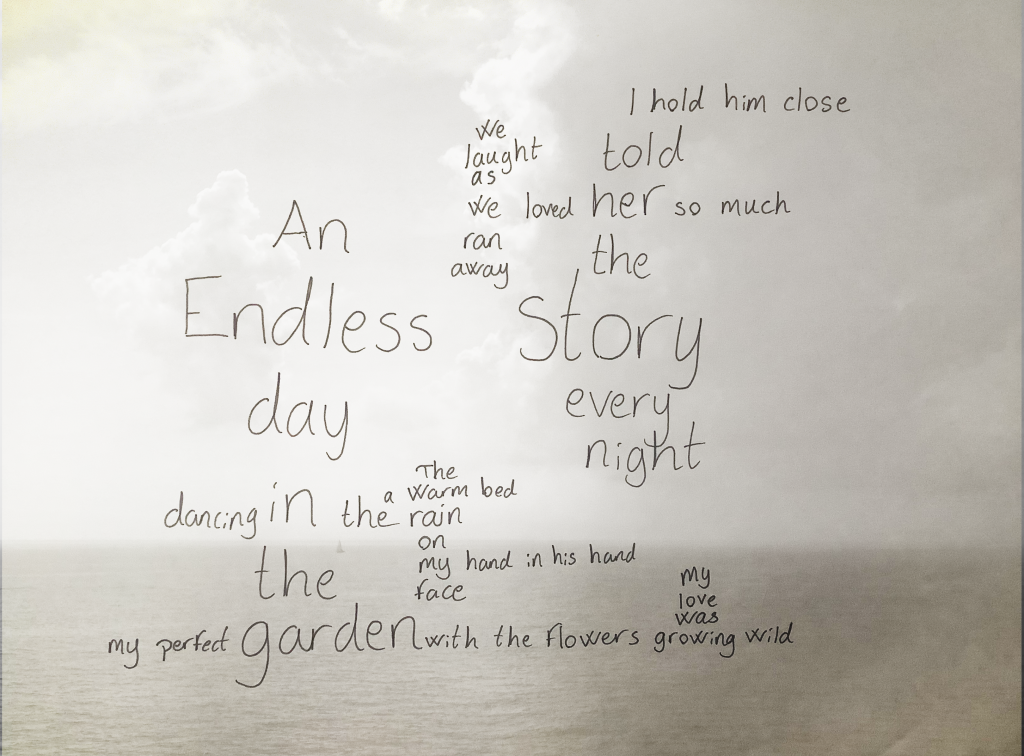 I hold him close
We
laught told
as
We loved her so much
An
ran
away the
Endless Story
day every
night
The
a warm bed
dancing in the rain
on
the my hand in his hand
face
my
love
was
my perfect garden with the flowers growing wild